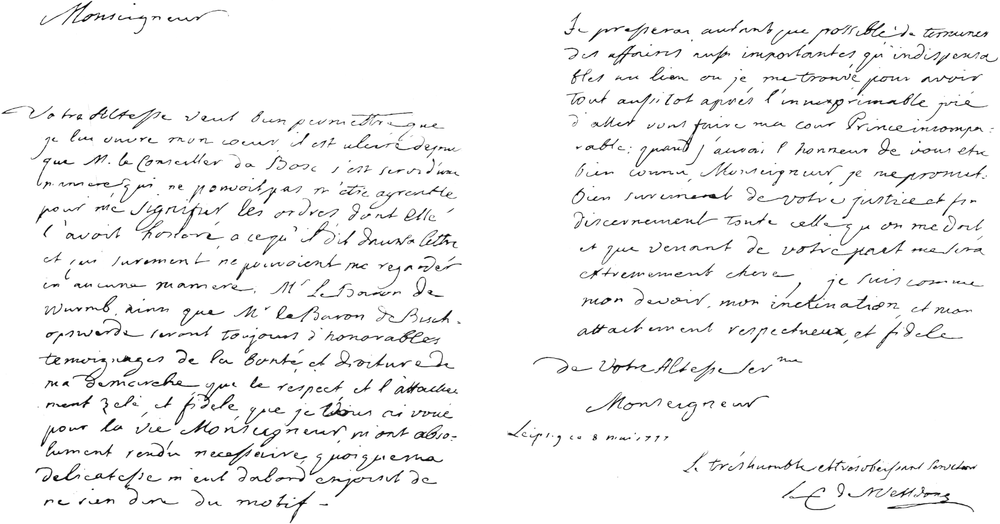 Monseigneur
Votre Altesse veut bien permettre que
je lui ouvre mon coeur, il est ulceré depuis
que M. le Conseiller du Bosc s'est servi d'une
maniere, qui ne pouvoit pas m'être agreable
pour me signifier les ordres dont elle
l'avoit honoré, a ce qu'il dit dans sa lettre
et qui surement ne pouvoient me regarder
in aucune maniere. Mr Le Baron de
Wurmb, ainsi que Mr le Baron de Bisch-
opswerde seront toujours d'honorables
temoignages de la bonté et droiture de
ma demarche, que le respect et l'attache
ment zelé et fidele, que je Vous ai voué
pour la vie Monseigneur, m'ont abso-
lument rendu necessaire, quoique ma
delicatesse m'eut d'abord enjoint de
ne rien dire du motif -
Je presserai autant que possible de terminer
des affaires auss importantes qu'indispensa
bles au lieu ou je me trouve pour avoir
tout aussitot aprés l'innexprimable joie
d'aller vous faire ma cour Prince incompa-
rable: quand j'aurai l'honneur de vous etre
bien connu, Monseigneur, je me promet.
bien surement de votre justice et
discernement toute celle qu'on me doit
et que venant de votre part me sera
extremement chere, je suis comme
mon devoir, mon inclination, et mon
attachement respectueux, et fidele
de Votre Altesse Ser me
Monseigneur
Leipzig ce 8 mai 1777
Le trés humble et tres obeissant Serviteur
Le C de Welldone